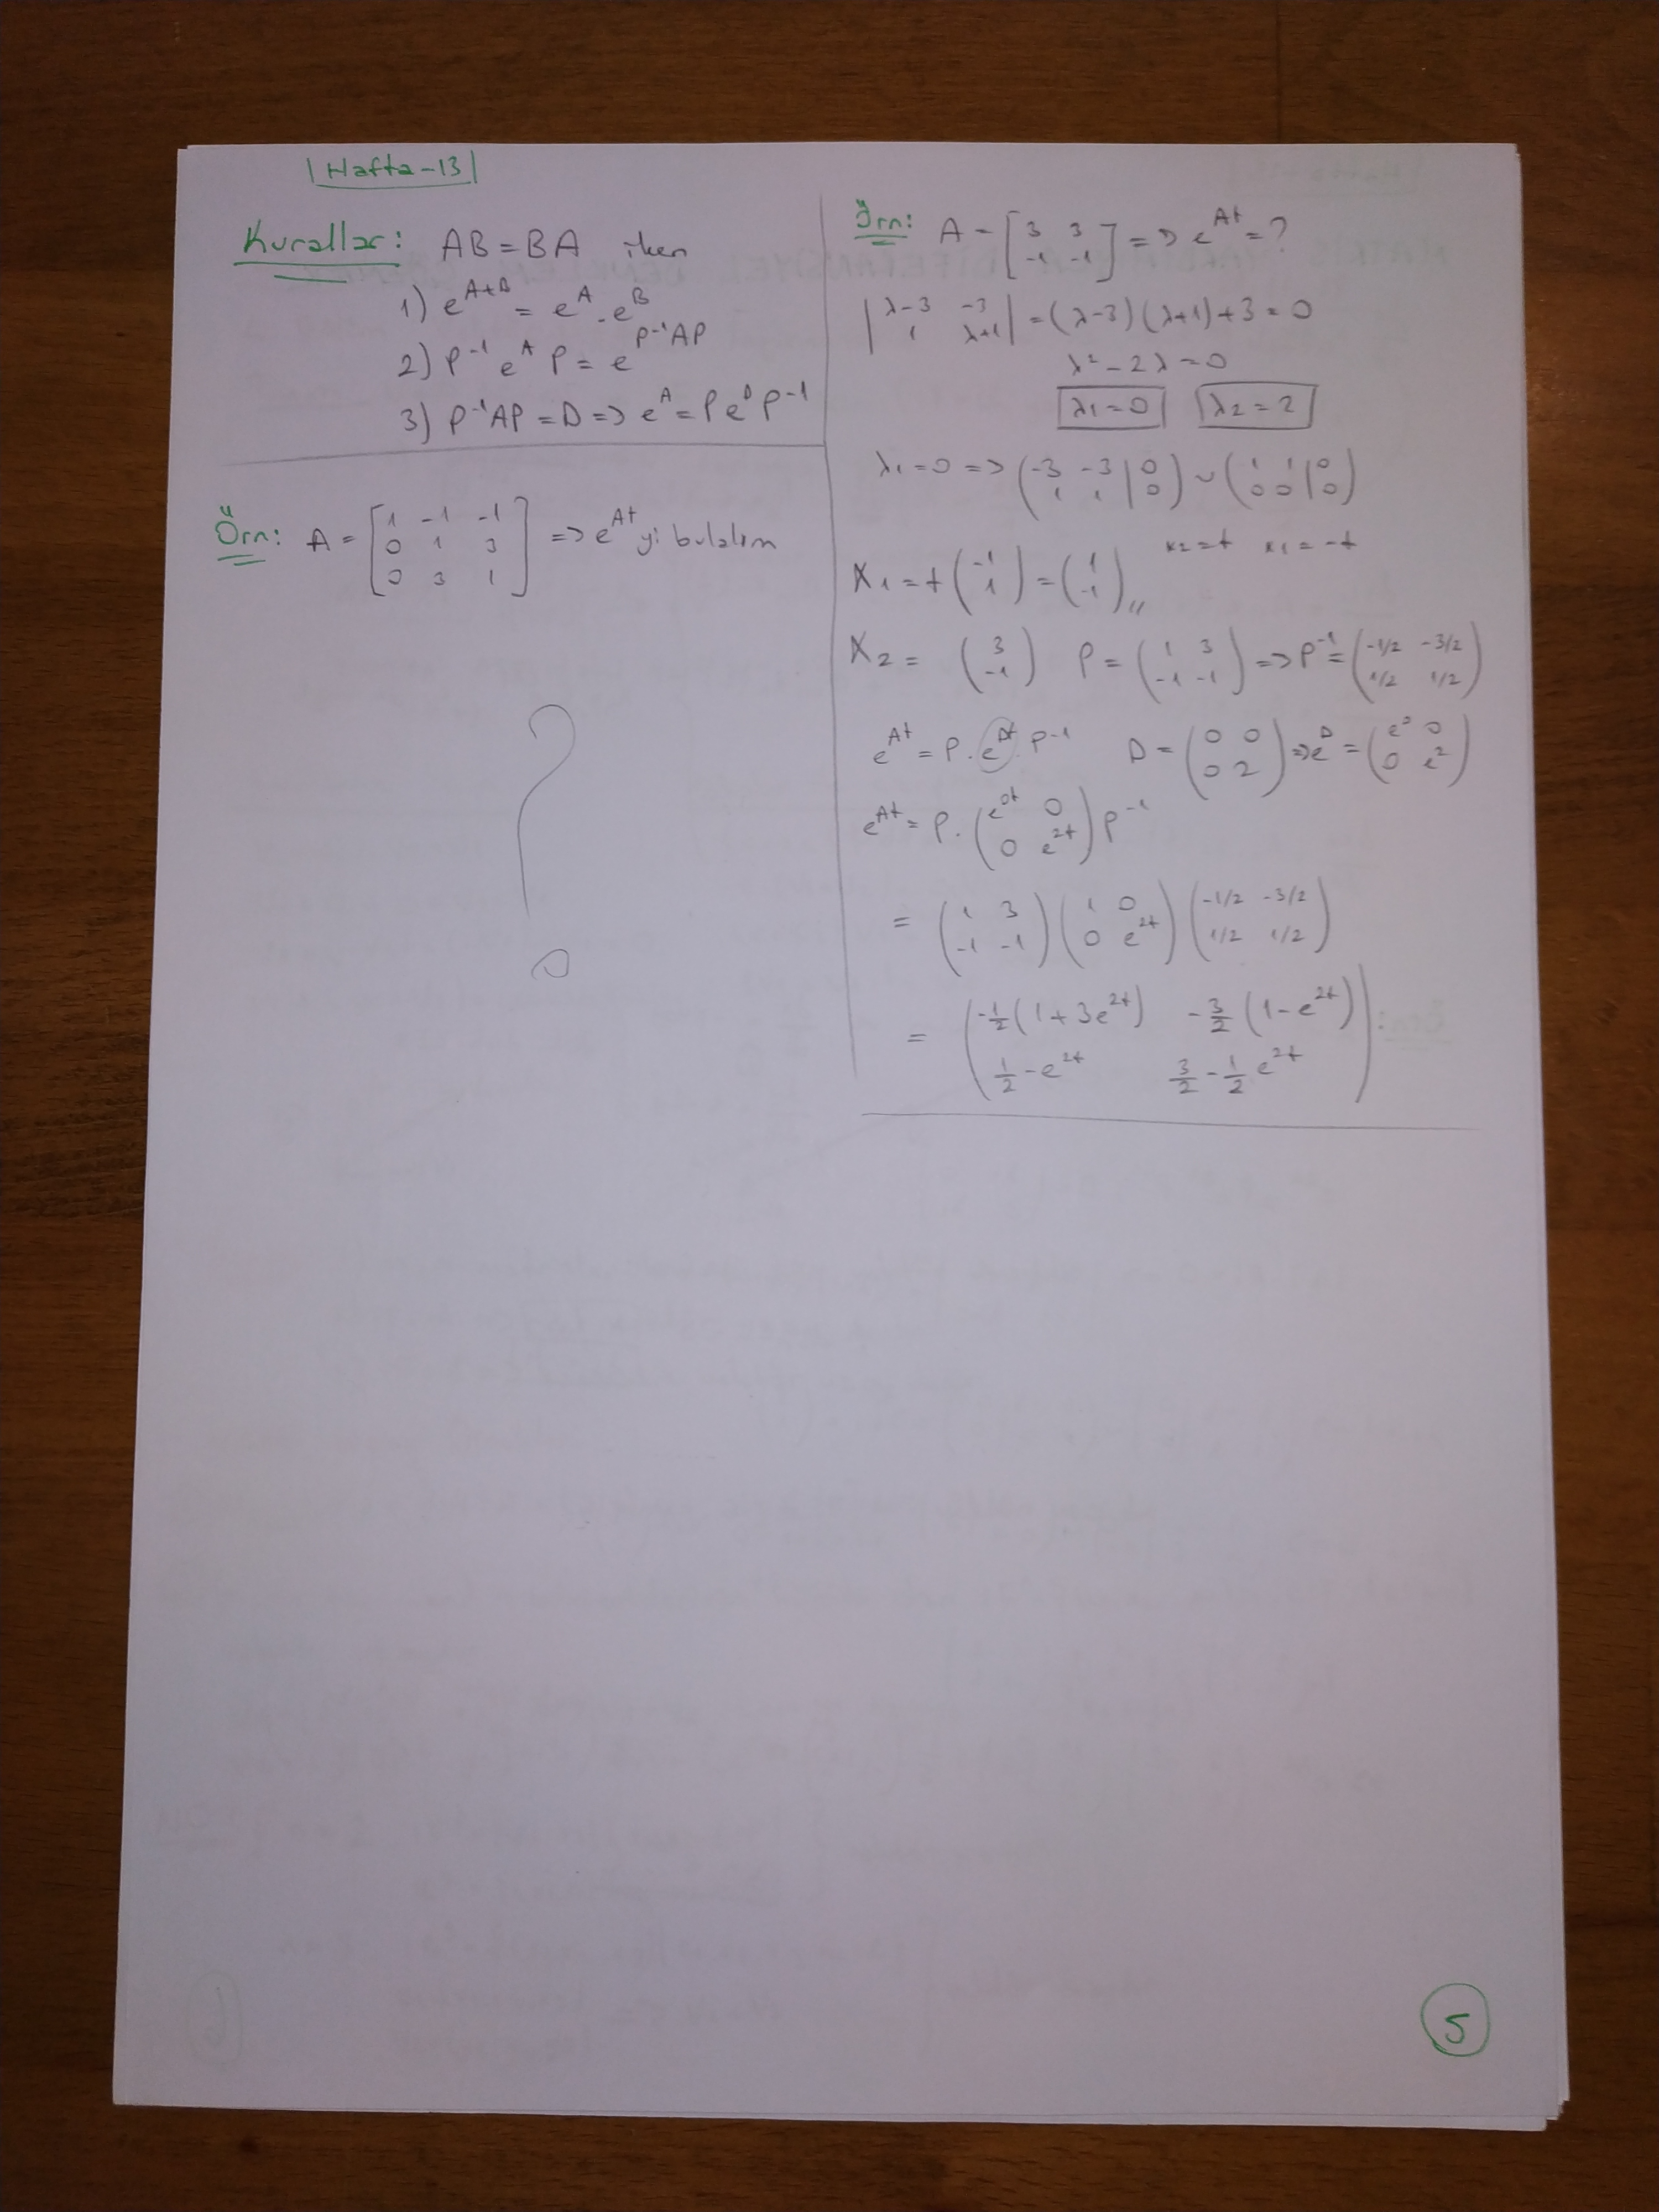 Hafta-13
Kurallar: AB = BA iken
1) e^{A+B} = e^A . e^B
2) P^{-1} e^A P = e^{P^{-1}AP}
3) P^{-1}AP = D => e^A = P e^D P^{-1}
Örn: A = [1 -1 -1; 0 1 3; 0 3 1] => e^{At} yi bulalım
?
Örn: A = [3 3; -1 -1] => e^{At} = ?
|λ-3 -3; 1 λ+1| = (λ-3)(λ+1)+3 = 0
λ² - 2λ = 0
λ1 = 0 λ2 = 2
λ1 = 0 => (-3 -3 | 0; 1 1 | 0) ~ (1 1 | 0; 0 0 | 0)
x2 = t x1 = -t
X1 = t (-1; 1) = (1; -1)
X2 = (3; -1) P = (1 3; -1 -1) => P^{-1} = (-1/2 -3/2; 1/2 1/2)
e^{At} = P . e^{Dt} P^{-1} D = (0 0; 0 2) => e^D = (e^0 0; 0 e^2)
e^{At} = P . (e^{0t} 0; 0 e^{2t}) P^{-1}
= (1 3; -1 -1) (1 0; 0 e^{2t}) (-1/2 -3/2; 1/2 1/2)
= (-1/2 (1 + 3e^{2t}) -3/2 (1 - e^{2t}); 1/2 - e^{2t} 3/2 - 1/2 e^{2t})
5